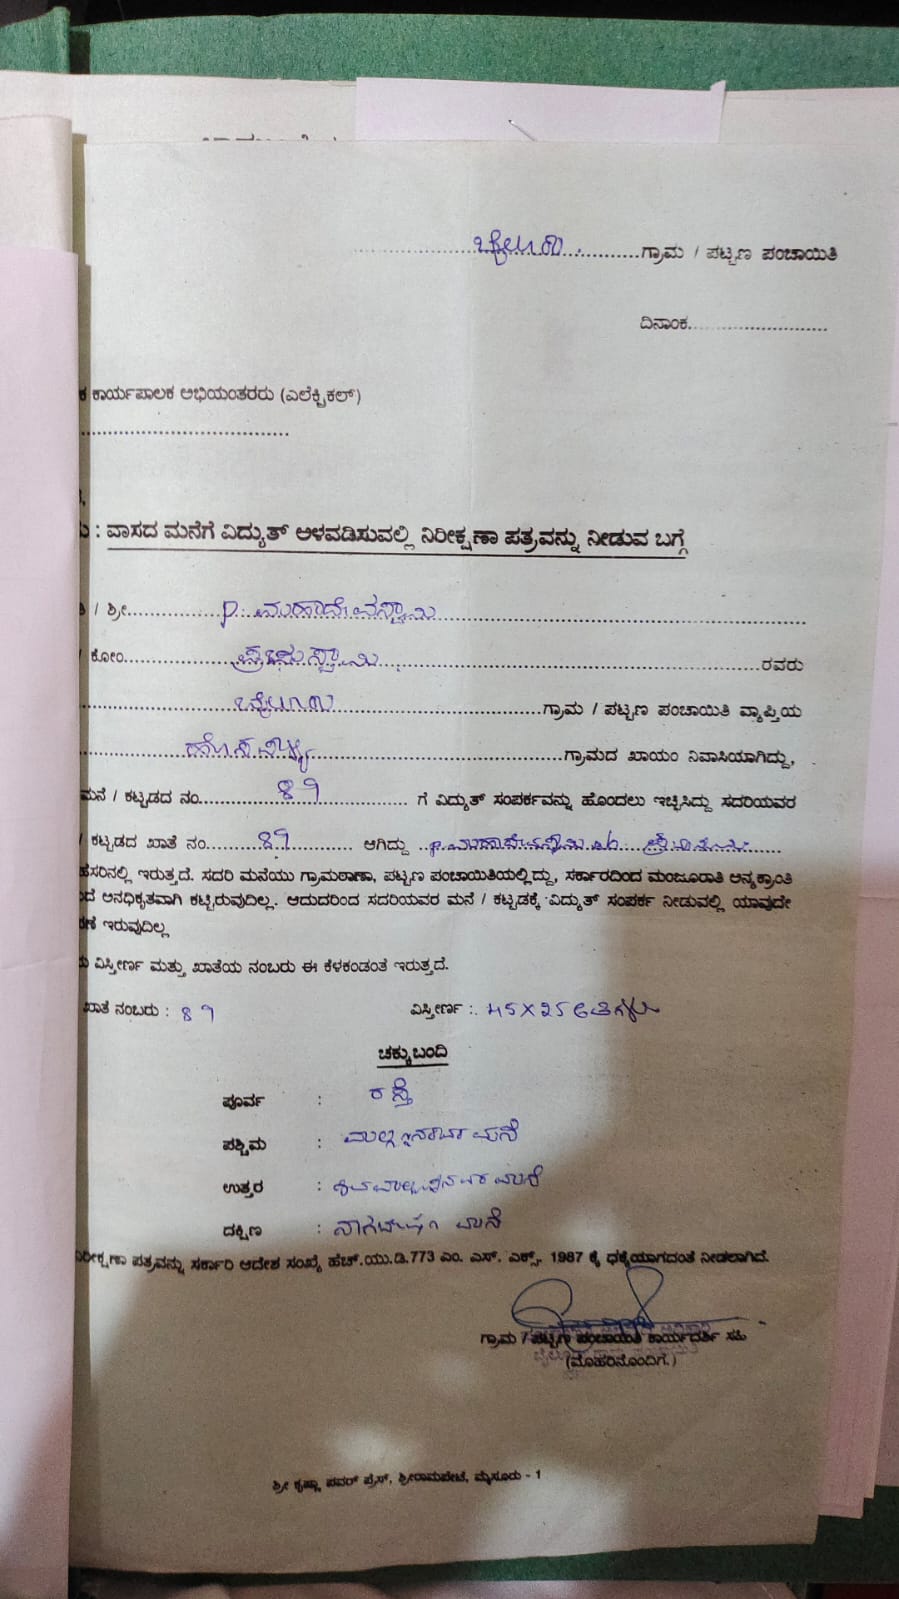 ಬೈಲೂರು. ಗ್ರಾಮ / ಪಟ್ಟಣ ಪಂಚಾಯಿತಿ
ದಿನಾಂಕ..........................
ಕಾರ್ಯಪಾಲಕ ಅಭಿಯಂತರರು (ಎಲೆಕ್ಟ್ರಿಕಲ್)
: ವಾಸದ ಮನೆಗೆ ವಿದ್ಯುತ್ ಅಳವಡಿಸುವಲ್ಲಿ ನಿರೀಕ್ಷಣಾ ಪತ್ರವನ್ನು ನೀಡುವ ಬಗ್ಗೆ
/ ಶ್ರೀ P. ಮಹಾದೇವಸ್ವಾಮಿ
/ ಕೋಂ ಪ್ರಭುಸ್ವಾಮಿ ರವರು
ಬೈಲೂರು ಗ್ರಾಮ / ಪಟ್ಟಣ ಪಂಚಾಯಿತಿ ವ್ಯಾಪ್ತಿಯ
ಗ್ರಾಮದ ಖಾಯಂ ನಿವಾಸಿಯಾಗಿದ್ದು,
ಮನೆ / ಕಟ್ಟಡದ ನಂ. 89 ಗೆ ವಿದ್ಯುತ್ ಸಂಪರ್ಕವನ್ನು ಹೊಂದಲು ಇಚ್ಛಿಸಿದ್ದು ಸದರಿಯವರ
/ ಕಟ್ಟಡದ ಖಾತೆ ನಂ. 89 ಆಗಿದ್ದು P. ಮಹಾದೇವಸ್ವಾಮಿ
ಹೆಸರಿನಲ್ಲಿ ಇರುತ್ತದೆ. ಸದರಿ ಮನೆಯು ಗ್ರಾಮಠಾಣಾ, ಪಟ್ಟಣ ಪಂಚಾಯಿತಿಯಲ್ಲಿದ್ದು, ಸರ್ಕಾರದಿಂದ ಮಂಜೂರಾತಿ ಅನ್ಯಕ್ರಾಂತಿ
ಅನಧಿಕೃತವಾಗಿ ಕಟ್ಟಿರುವುದಿಲ್ಲ. ಆದುದರಿಂದ ಸದರಿಯವರ ಮನೆ / ಕಟ್ಟಡಕ್ಕೆ ವಿದ್ಯುತ್ ಸಂಪರ್ಕ ನೀಡುವಲ್ಲಿ ಯಾವುದೇ
ಇರುವುದಿಲ್ಲ
ವಿಸ್ತೀರ್ಣ ಮತ್ತು ಖಾತೆಯ ನಂಬರು ಈ ಕೆಳಕಂಡಂತೆ ಇರುತ್ತದೆ.
ಖಾತೆ ನಂಬರು : 89 ವಿಸ್ತೀರ್ಣ : 45 X 25 ಅಡಿಗಳು
ಚಕ್ಕುಬಂದಿ
ಪೂರ್ವ : ರಸ್ತೆ
ಪಶ್ಚಿಮ : ಮನೆ
ಉತ್ತರ : ಮನೆ
ದಕ್ಷಿಣ : ಮನೆ
ನಿರೀಕ್ಷಣಾ ಪತ್ರವನ್ನು ಸರ್ಕಾರಿ ಆದೇಶ ಸಂಖ್ಯೆ ಹೆಚ್.ಯು.ಡಿ.773 ಎಂ. ಎಸ್. ಎಕ್ಸ್. 1987 ಕ್ಕೆ ಧಕ್ಕೆಯಾಗದಂತೆ ನೀಡಲಾಗಿದೆ.
ಗ್ರಾಮ / ಪಟ್ಟಣ ಪಂಚಾಯಿತಿ ಕಾರ್ಯದರ್ಶಿ ಸಹಿ
(ಮೊಹರಿನೊಂದಿಗೆ.)
ಶ್ರೀ ಕೃಷ್ಣಾ ಪವರ್ ಪ್ರೆಸ್, ಶ್ರೀರಾಮಪೇಟೆ, ಮೈಸೂರು - 1